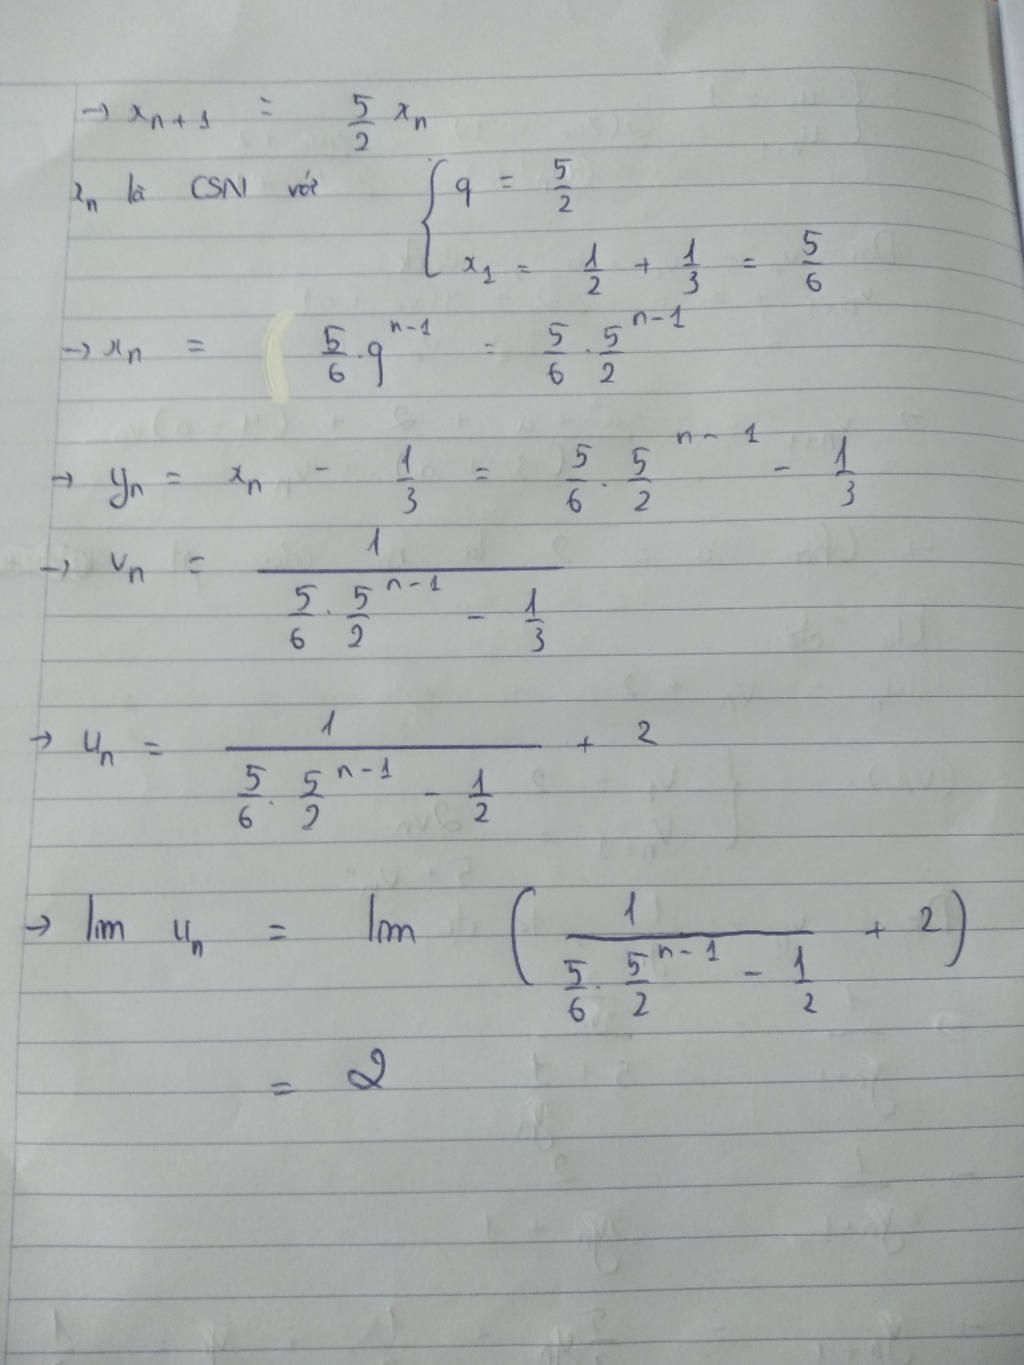 → x_{n+1} = \frac{5}{2} x_n
x_n là CSN với { q = \frac{5}{2}
x_1 = \frac{1}{2} + \frac{1}{3} = \frac{5}{6}
→ x_n = \frac{5}{6} . q^{n-1} = \frac{5}{6} . \frac{5}{2}^{n-1}
→ y_n = x_n - \frac{1}{3} = \frac{5}{6} . \frac{5}{2}^{n-1} - \frac{1}{3}
→ v_n = \frac{1}{\frac{5}{6} . \frac{5}{2}^{n-1} - \frac{1}{3}}
→ u_n = \frac{1}{\frac{5}{6} . \frac{5}{2}^{n-1} - \frac{1}{2}} + 2
→ lim u_n = lim ( \frac{1}{\frac{5}{6} . \frac{5}{2}^{n-1} - \frac{1}{2}} + 2 )
= 2